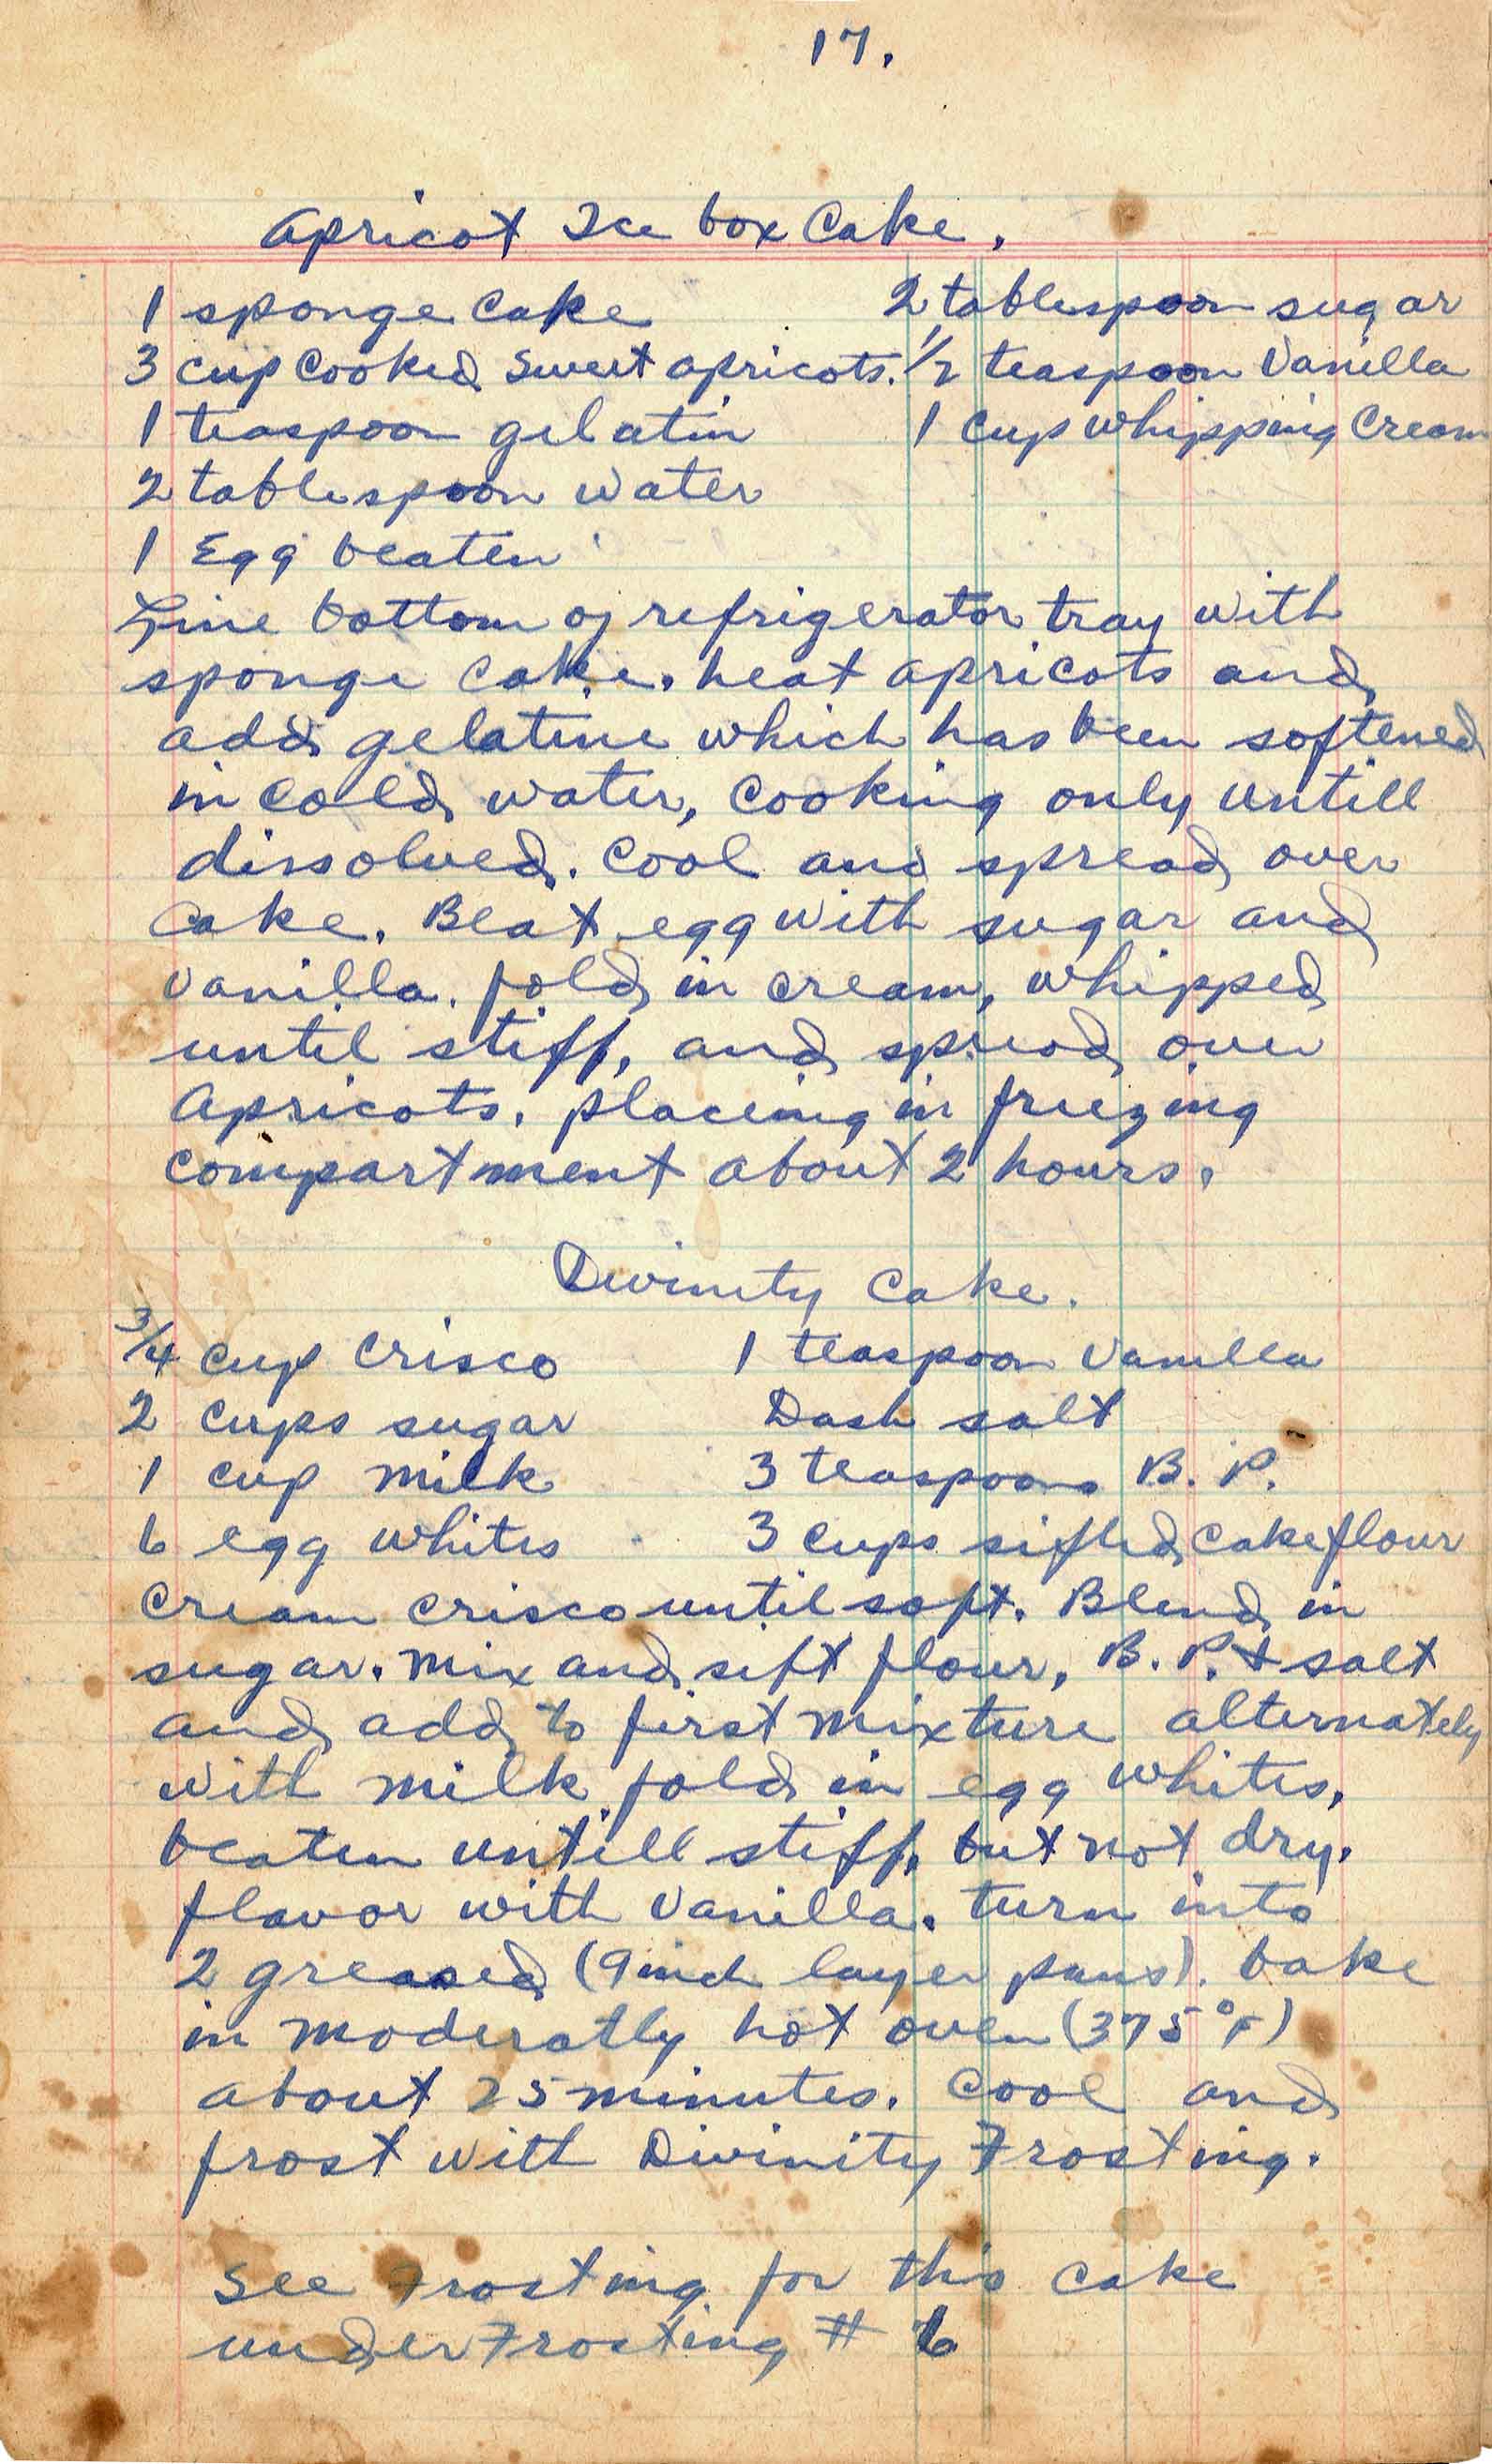 17.
Apricot Ice box Cake.
1 sponge Cake 2 tablespoon sugar
3 cup Cooked Sweet apricots. 1/2 teaspoon Vanilla
1 teaspoon gelatin 1 Cup Whipping Cream
2 tablespoon water
1 Egg beaten
Line bottom of refrigerator tray with
sponge cake. heat apricots and
add gelatine which has been softened
in cold water, Cooking only untill
dissolved. Cool and spread over
Cake. Beat egg with sugar and
vanilla. fold in cream, whipped
until stiff, and spread over
Apricots. placeing in freezing
compartment about 2 hours.
Divinity Cake.
3/4 cup Crisco 1 teaspoon Vanilla
2 cups sugar Dash salt
1 cup milk 3 teaspoons B. P.
6 egg whites 3 cups sifted cake flour
Cream crisco until soft. Blend in
sugar. Mix and sift flour, B. P. & salt
and add to first mixture alternately
with milk fold in egg whites,
beaten untill stiff, but not dry.
flavor with Vanilla. turn into
2 greased (9 inch layer pans). bake
in moderatly hot oven (375°F)
about 25 minutes. Cool and
frost with Divinity Frosting.
See Frosting for this cake
under Frosting # 6